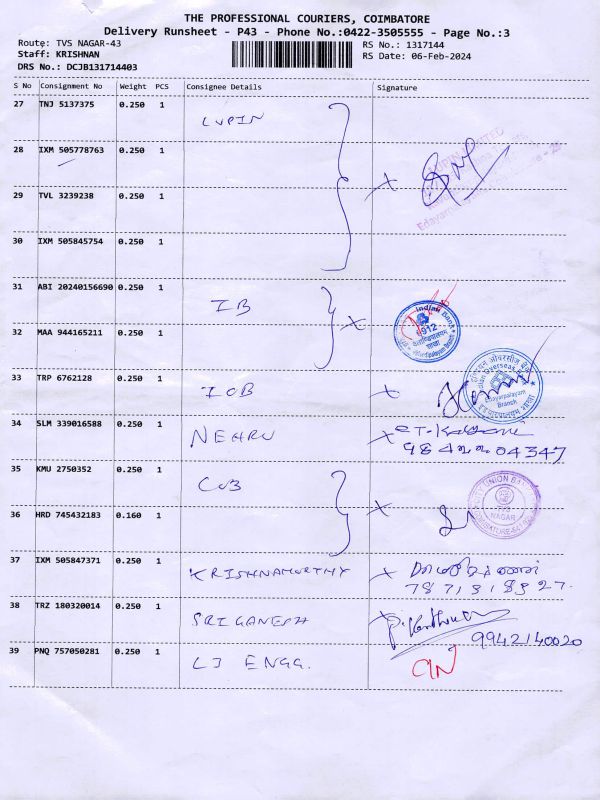 THE PROFESSIONAL COURIERS, COIMBATORE
Delivery Runsheet - P43 - Phone No.:0422-3505555 - Page No.:3
Route: TVS NAGAR-43 RS No.: 1317144
Staff: KRISHNAN RS Date: 06-Feb-2024
DRS No.: DCJB131714403
S No Consignment No Weight PCS Consignee Details Signature
27 TNJ 5137375 0.250 1 LUPIN
28 IXM 505778763 0.250 1
29 TVL 3239238 0.250 1
30 IXM 505845754 0.250 1
31 ABI 20240156690 0.250 1 IB
Indian Bank
1912
32 MAA 944165211 0.250 1
33 TRP 6762128 0.250 1 IOB
Indian Overseas Bank
Edayarpalayam
Branch
34 SLM 339016588 0.250 1 NEHRU
35 KMU 2750352 0.250 1 CUB
UNION BA
NAGAR
36 HRD 745432183 0.160 1
37 IXM 505847371 0.250 1 KRISHNAMURTHY
38 TRZ 180320014 0.250 1 SRI GANESH
9942140020
39 PNQ 757050281 0.250 1 LJ ENGG.